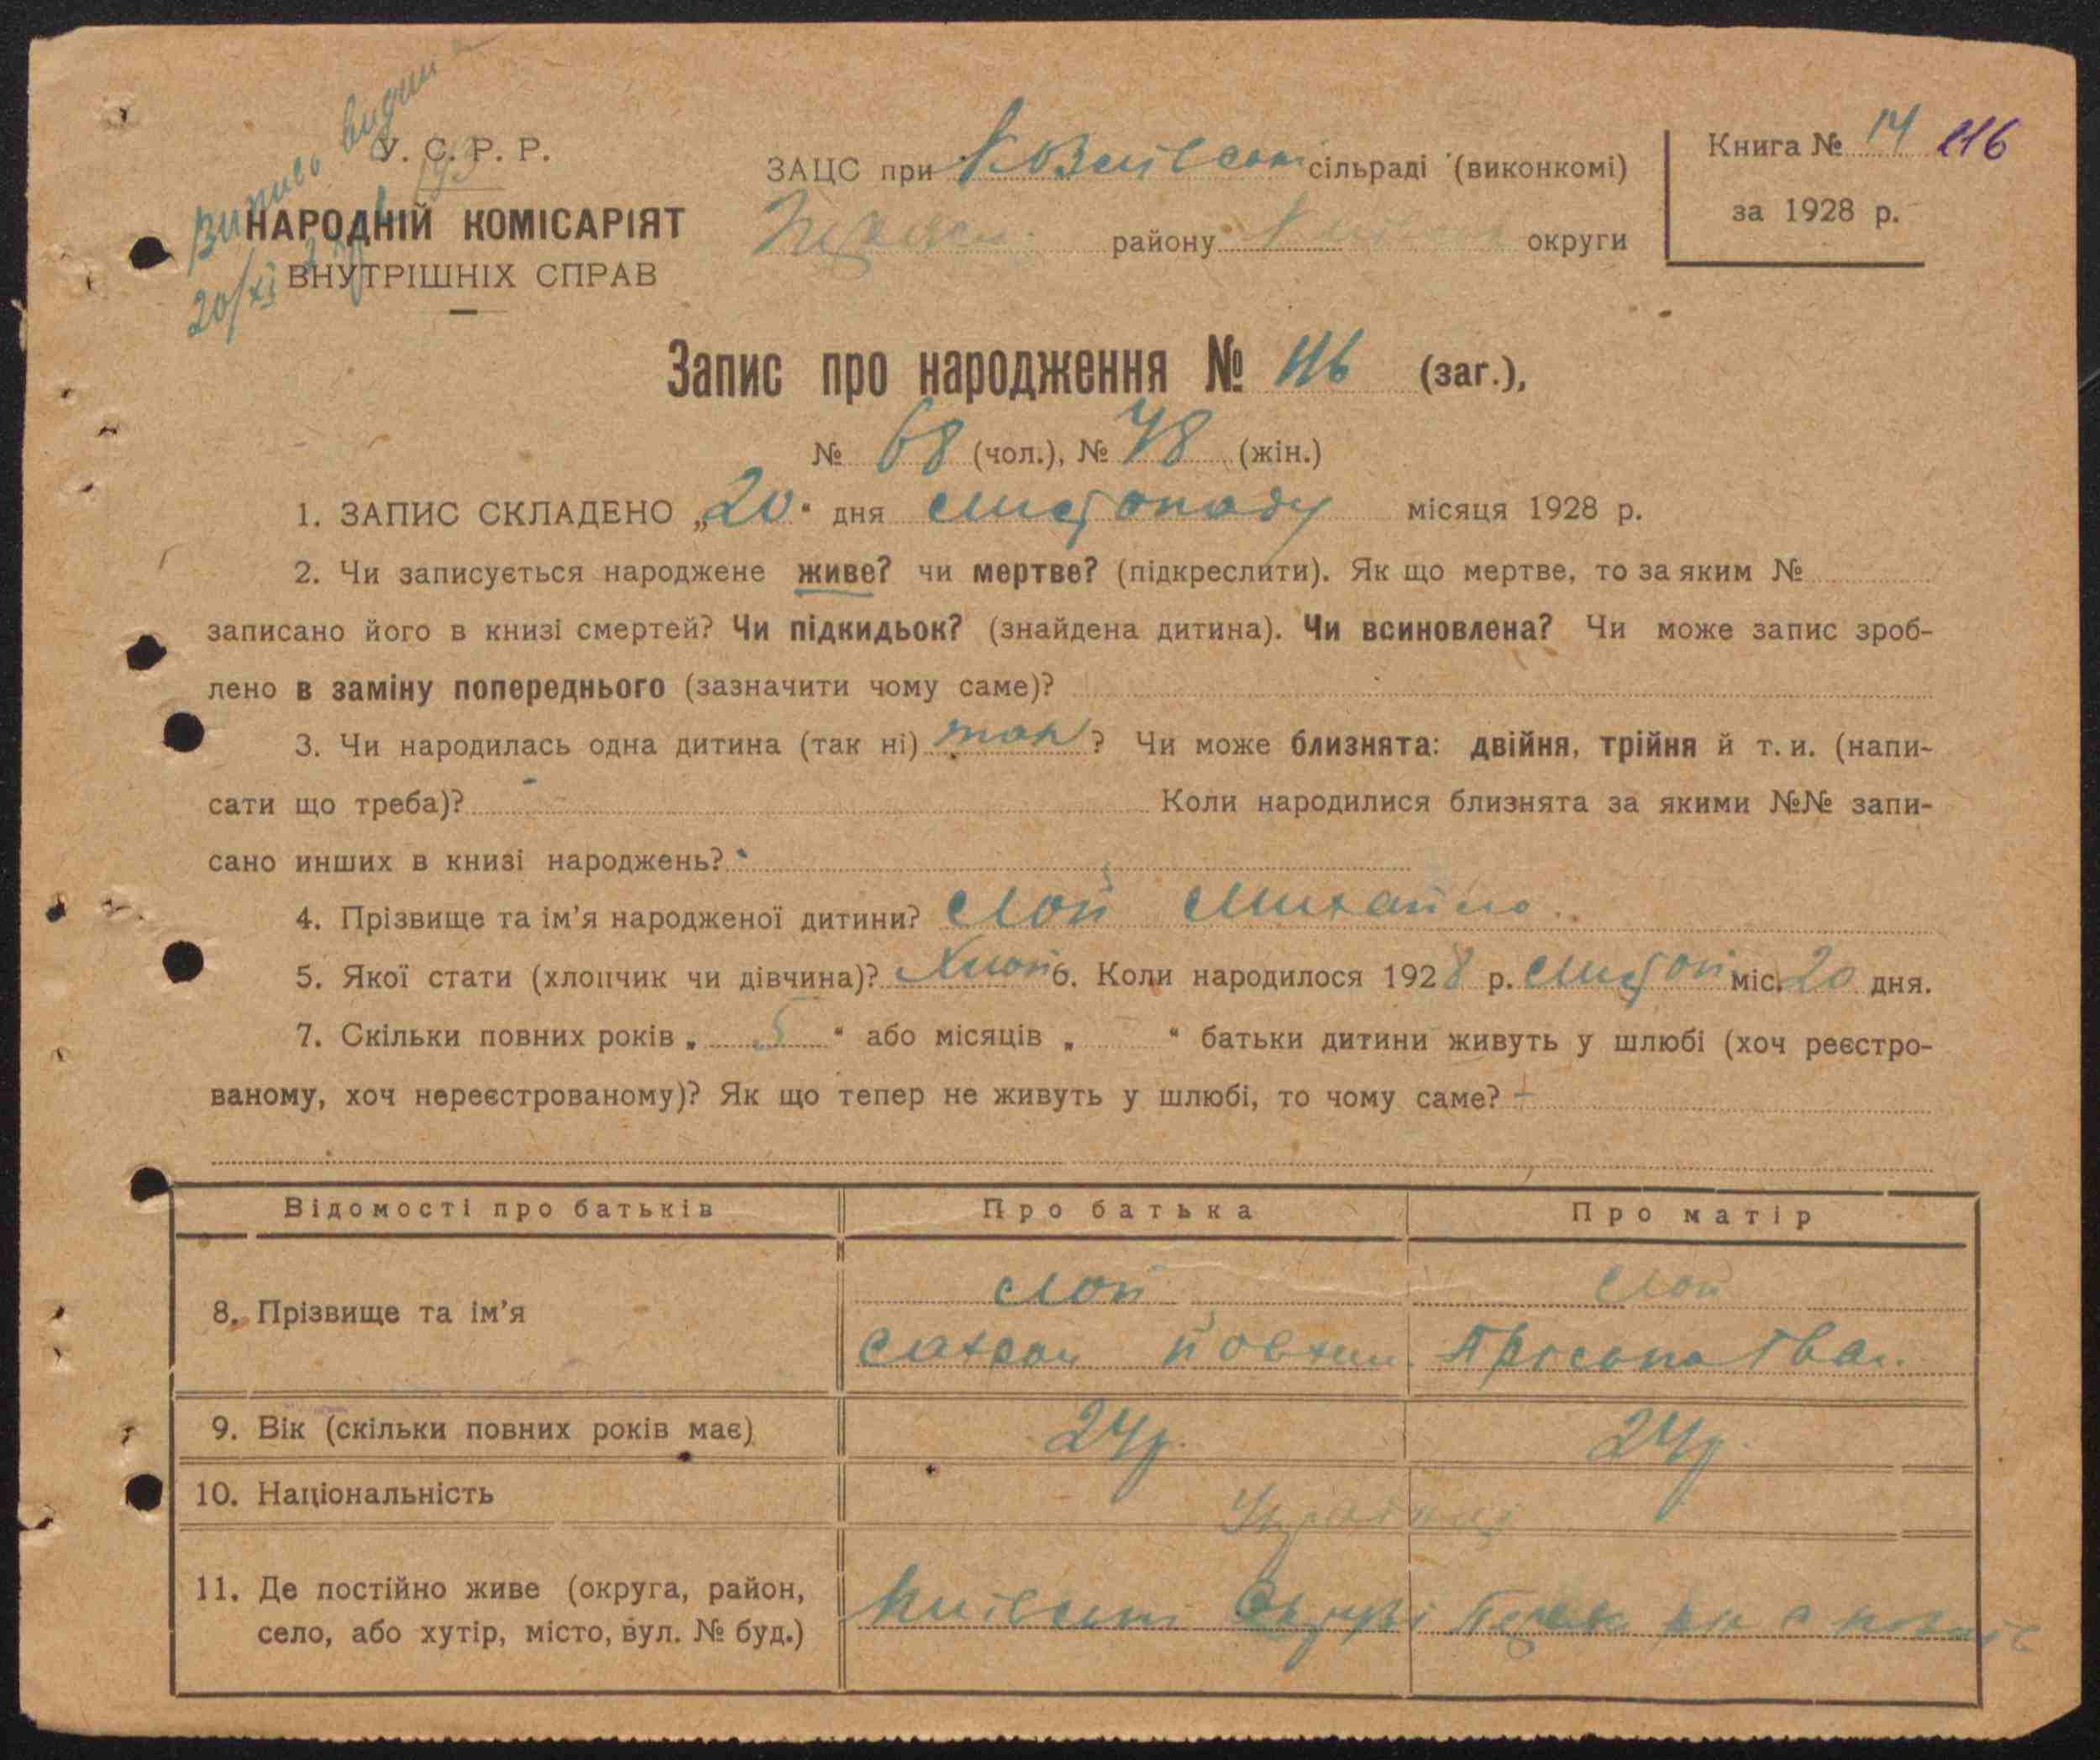 Випись видана
У. С. Р. Р.
НАРОДНІЙ КОМІСАРІЯТ
ВНУТРІШНІХ СПРАВ
20/XI
ЗАЦС при сільраді (виконкомі)
району округи
Книга № 14 116
за 1928 р.
Запис про народження № 116 (заг.),
№ 68 (чол.), № 48 (жін.)
1. ЗАПИС СКЛАДЕНО „20“ дня листопаду місяця 1928 р.
2. Чи записується народжене живе? чи мертве? (підкреслити). Як що мертве, то за яким №
записано його в книзі смертей? Чи підкидьок? (знайдена дитина). Чи всиновлена? Чи може запис зроб-
лено в заміну попереднього (зазначити чому саме)?
3. Чи народилась одна дитина (так ні) так ? Чи може близнята: двійня, трійня й т. и. (напи-
сати що треба)? - Коли народилися близнята за якими №№ запи-
сано инших в книзі народжень?
4. Прізвище та ім’я народженої дитини? Лой Михайло
5. Якої стати (хлопчик чи дівчина)? Хлоп 6. Коли народилося 1928 р. Листоп міс. 20 дня.
7. Скільки повних років „ 5 “ або місяців „ “ батьки дитини живуть у шлюбі (хоч реєстро-
ваному, хоч нереєстрованому)? Як що тепер не живуть у шлюбі, то чому саме?
Відомості про батьків Про батька Про матір
8. Прізвище та ім’я Лой Лой
Йовхим. Іван.
9. Вік (скільки повних років має) 24р. 24р.
10. Національність Українці
11. Де постійно живе (округа, район,
село, або хутір, місто, вул. № буд.) Київській Окрузі